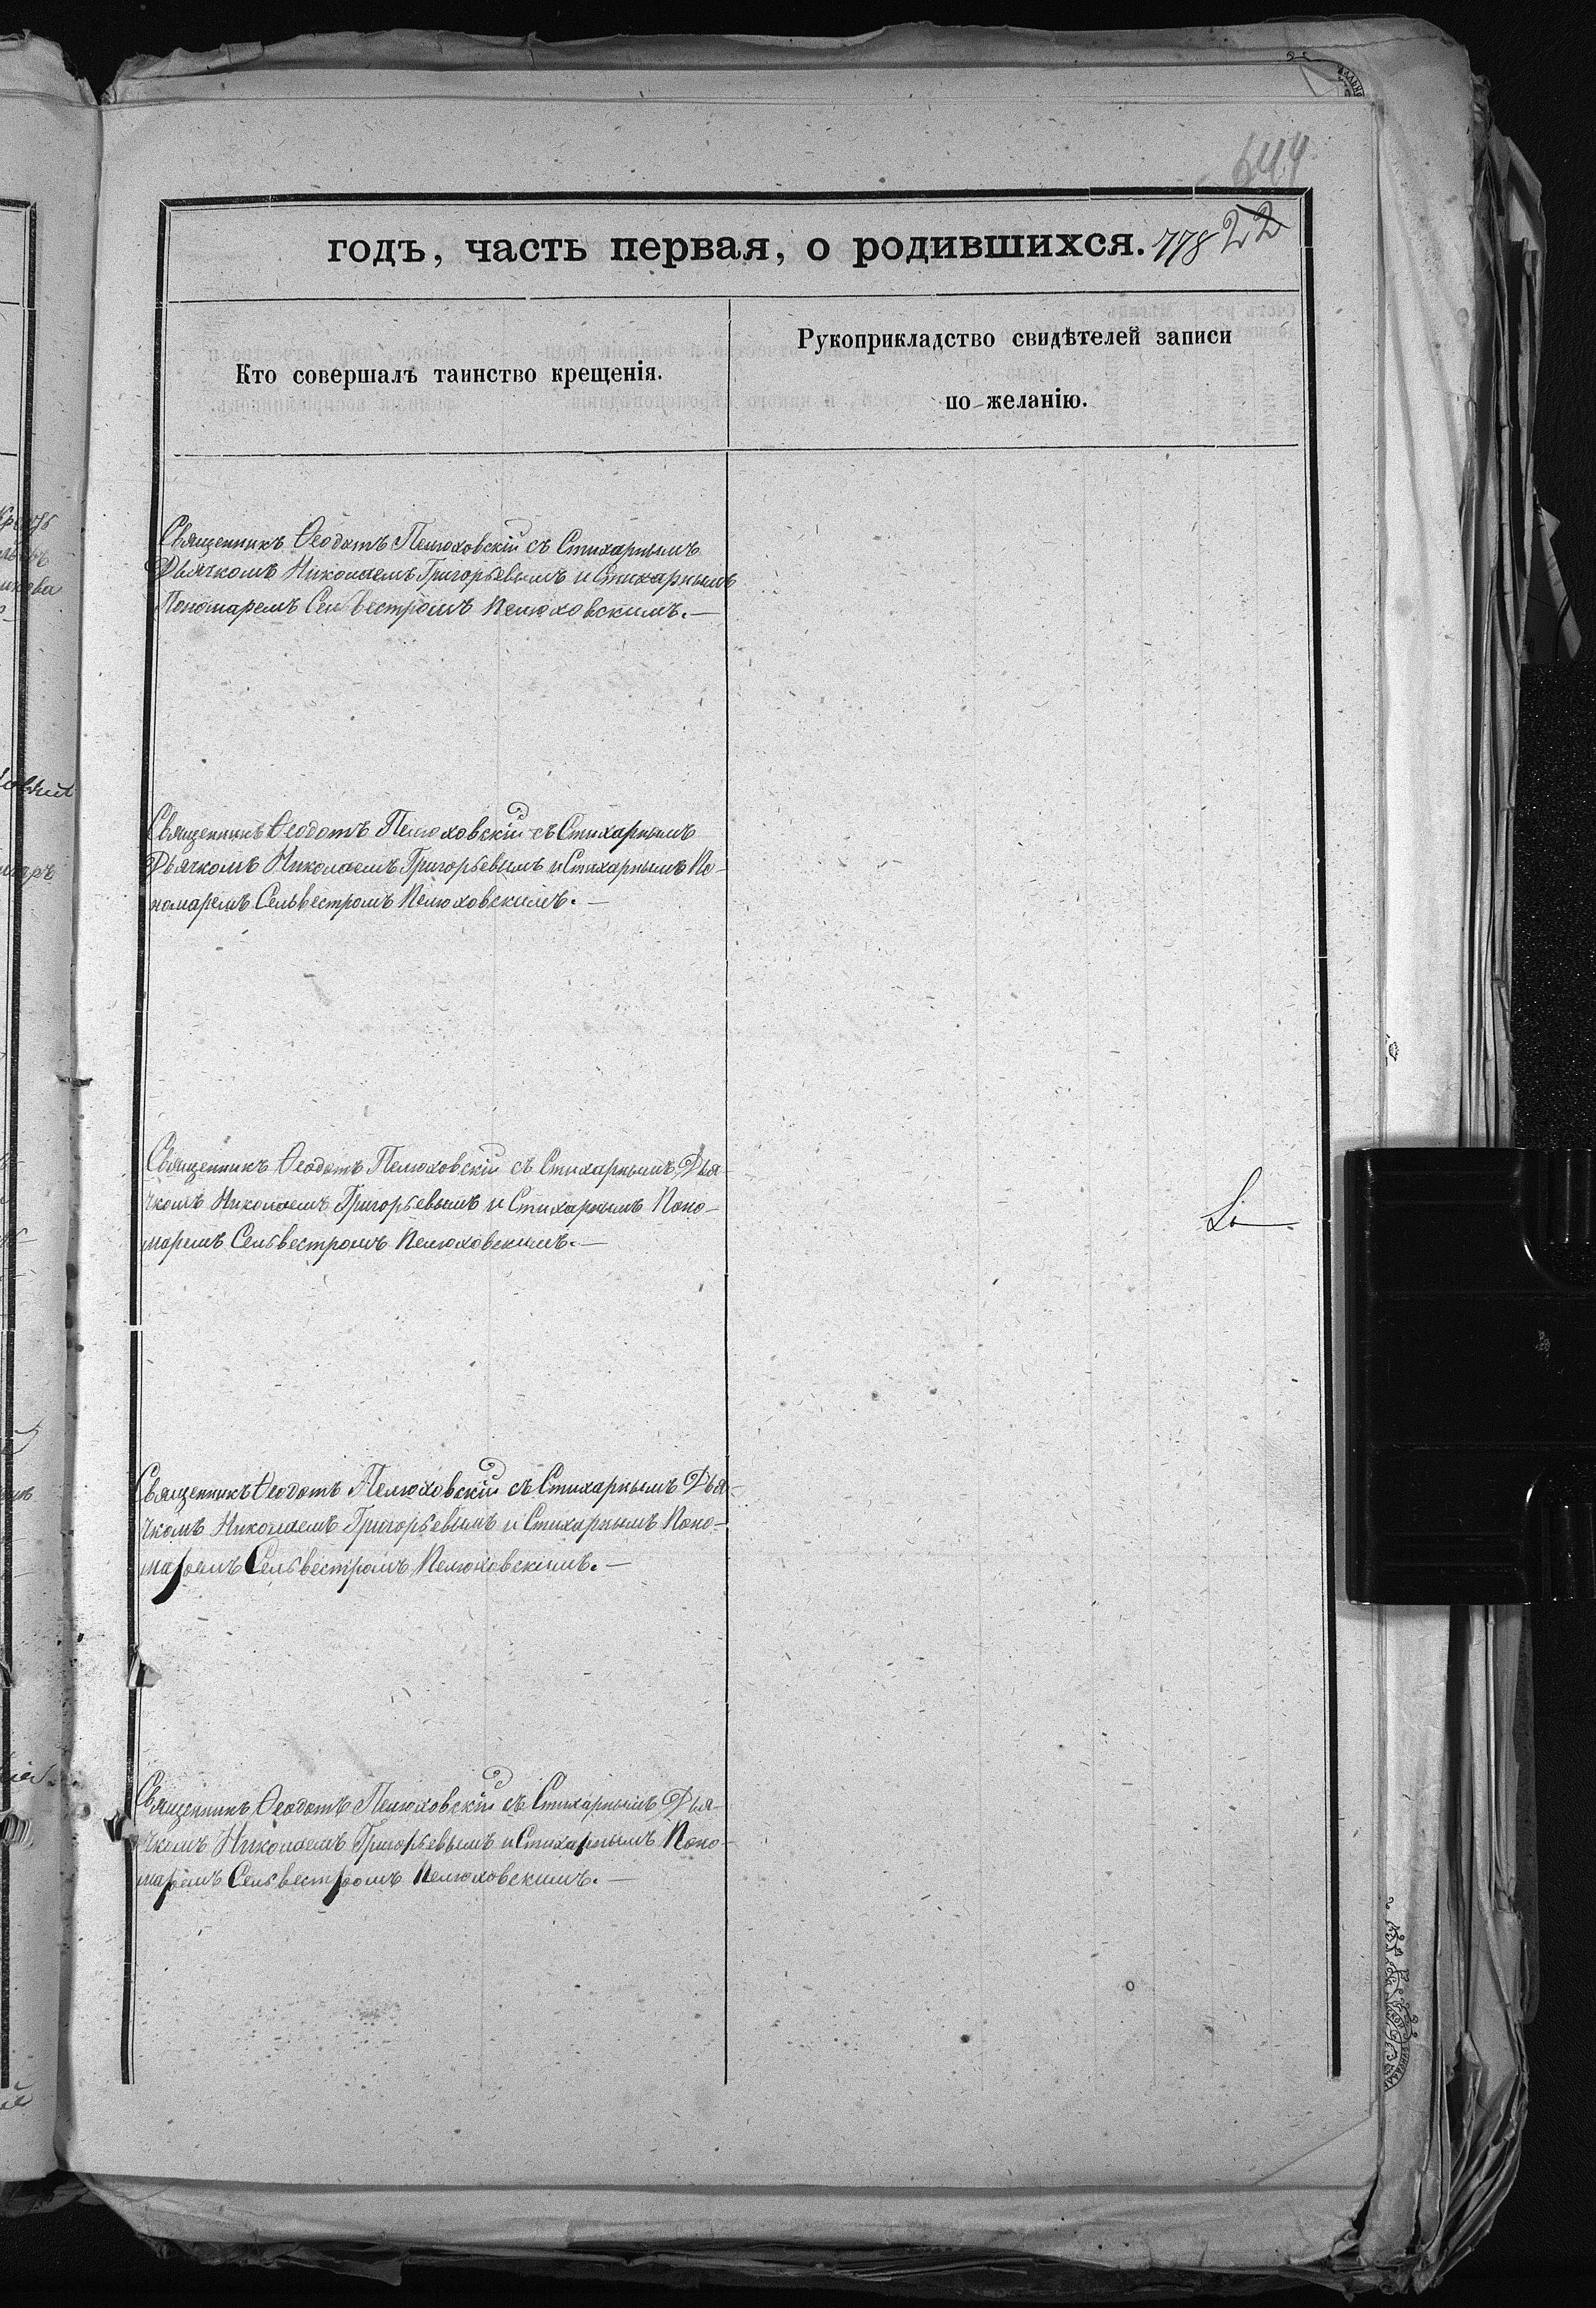 644
годъ, часть первая, о родившихся. 778 22
Кто совершалъ таинство крещенія.
Рукоприкладство свидѣтелей записи
по желанію.
Священникъ Ѳеодотъ Пелюховскій съ Стихарнымъ
Дьячкомъ Николаемъ Григорьевымъ и Стихарнымъ
Пономаремъ Сельвестромъ Пелюховскимъ. —
Священникъ Ѳеодотъ Пелюховскій съ Стихарнымъ
Дьячкомъ Николаемъ Григорьевымъ и Стихарнымъ По-
номаремъ Сельвестромъ Пелюховскимъ. —
Священникъ Ѳеодотъ Пелюховскій съ Стихарнымъ Дья-
чкомъ Николаемъ Григорьевымъ и Стихарнымъ Поно-
маремъ Сельвестромъ Пелюховскимъ. —
Священникъ Ѳеодотъ Пелюховскій съ Стихарнымъ Дья-
чкомъ Николаемъ Григорьевымъ и Стихарнымъ Поно-
маремъ Сельвестромъ Пелюховскимъ. —
Священникъ Ѳеодотъ Пелюховскій съ Стихарнымъ Дья-
чкомъ Николаемъ Григорьевымъ и Стихарнымъ Поно-
маремъ Сельвестромъ Пелюховскимъ. —